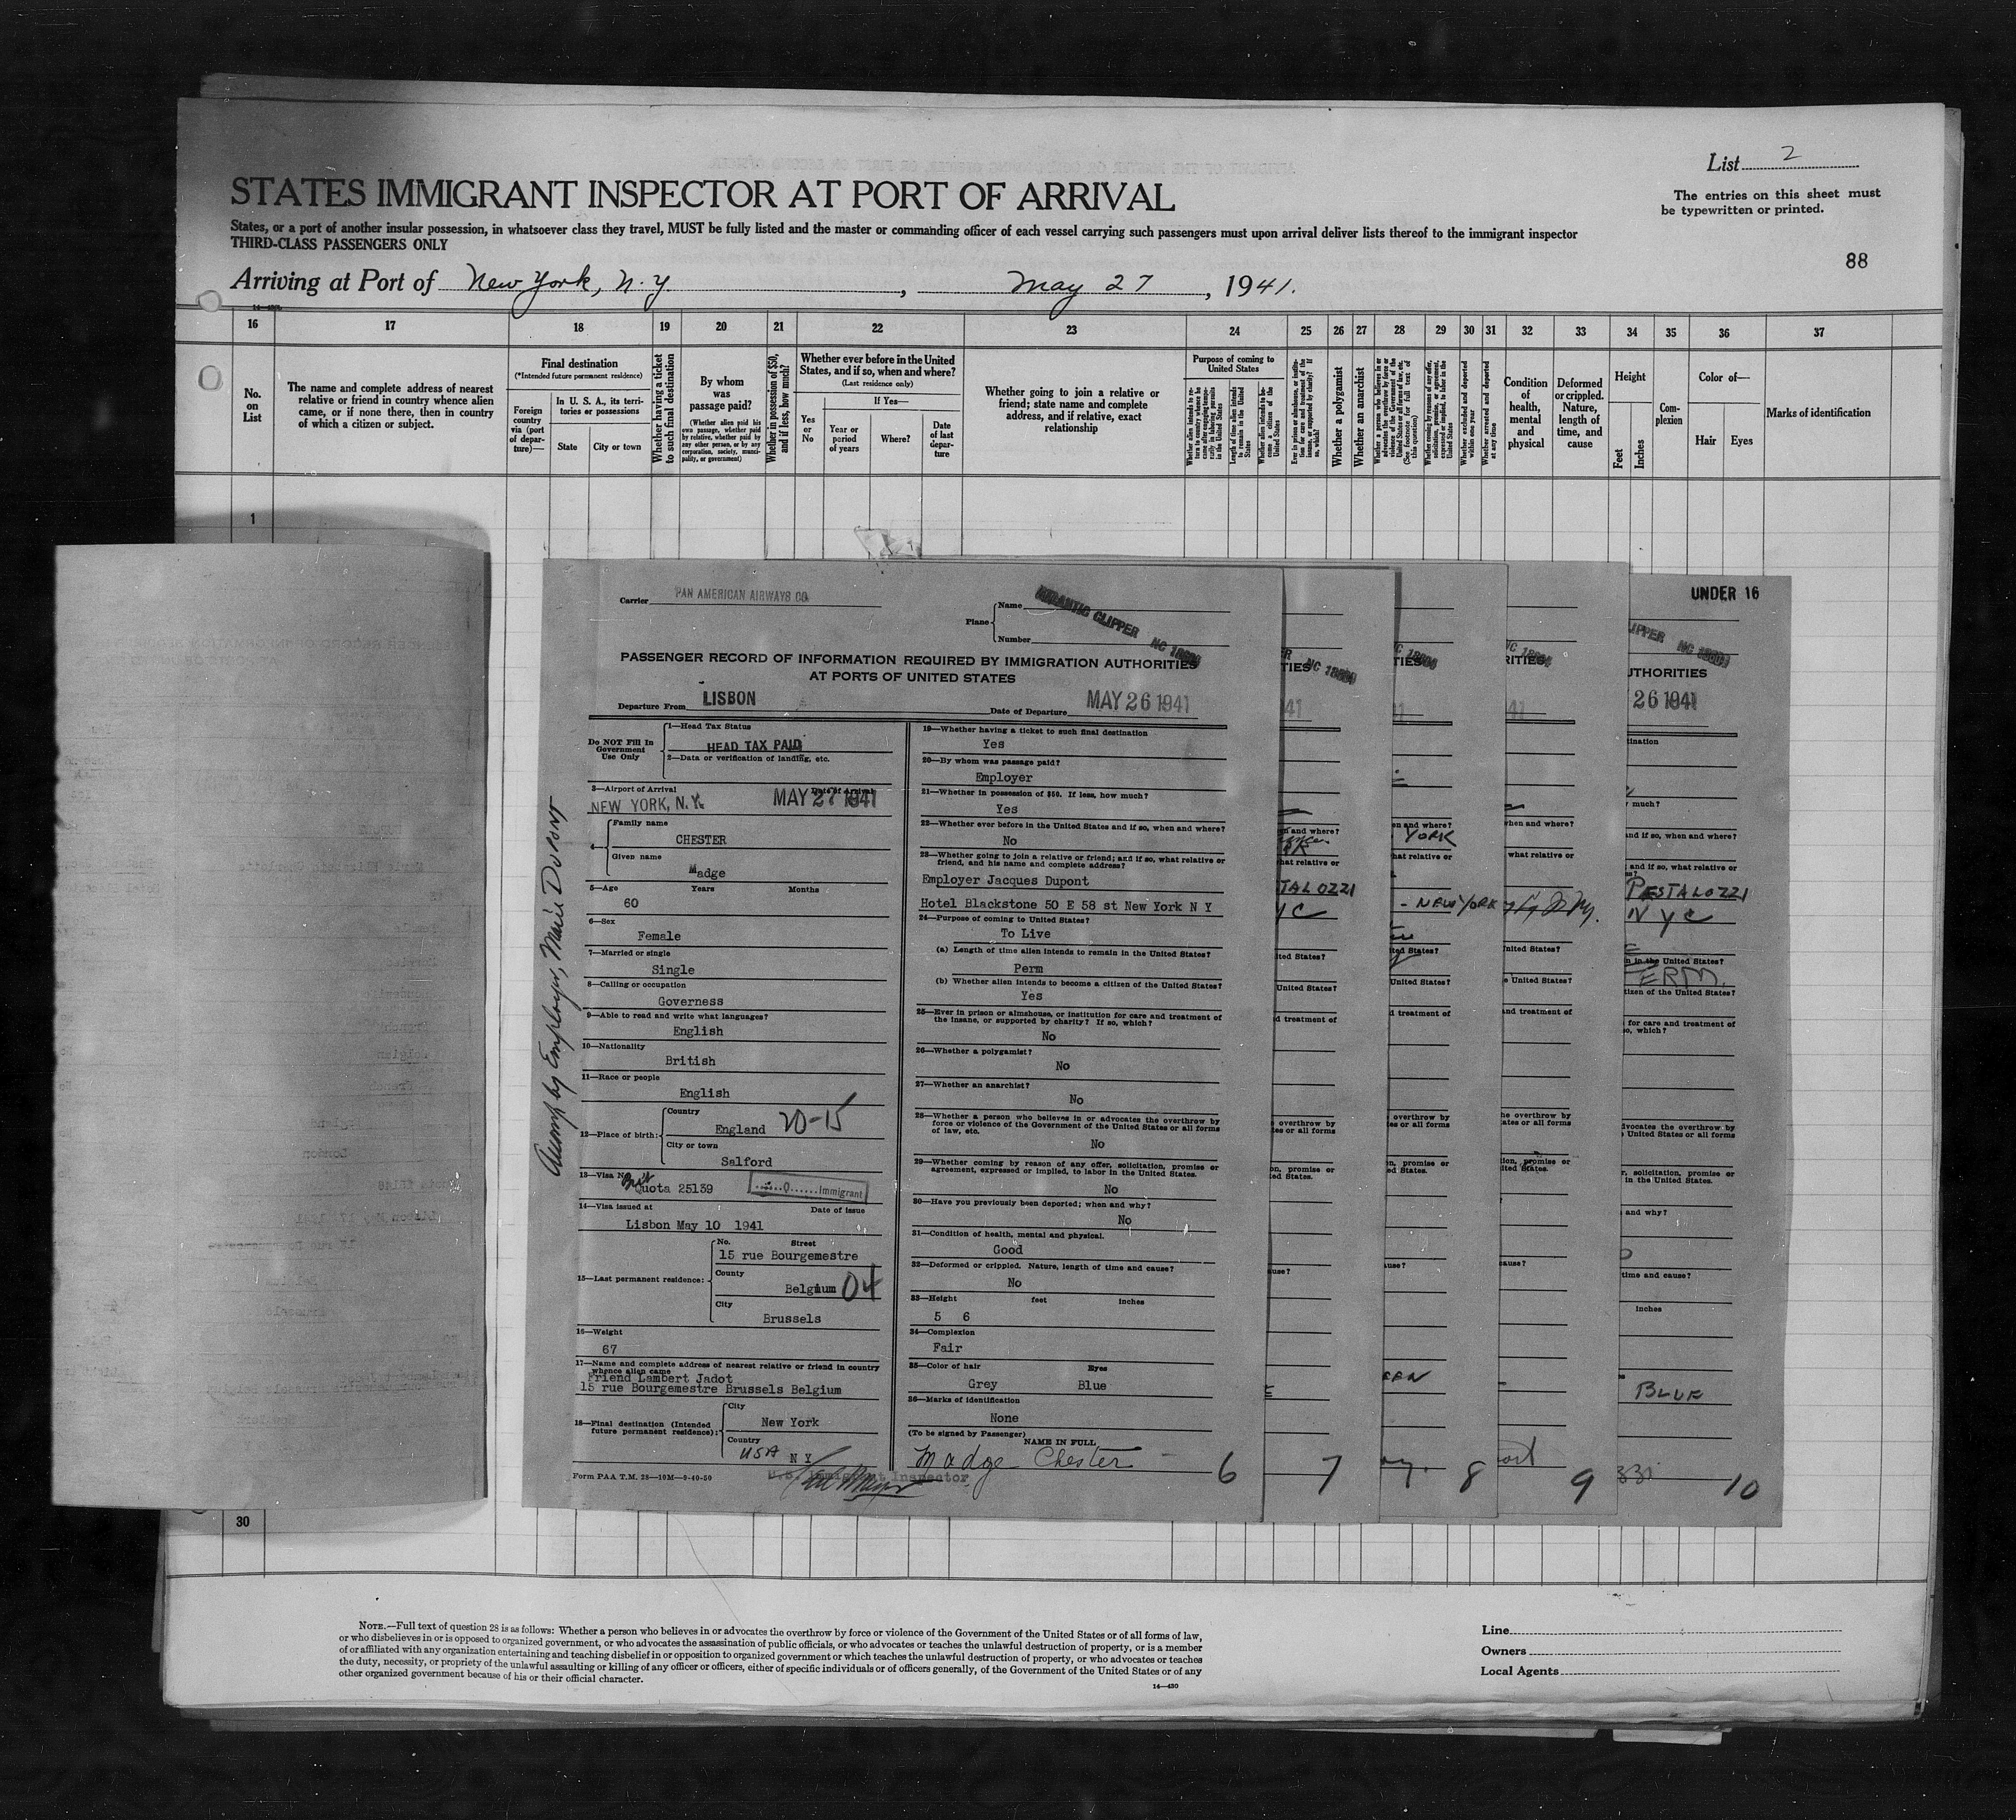 List 2
STATES IMMIGRANT INSPECTOR AT PORT OF ARRIVAL
The entries on this sheet must
be typewritten or printed.
States, or a port of another insular possession, in whatsoever class they travel, MUST be fully listed and the master or commanding officer of each vessel carrying such passengers must upon arrival deliver lists thereof to the immigrant inspector
THIRD-CLASS PASSENGERS ONLY
88
Arriving at Port of New York, N.Y. , May 27, 1941.
16 17 18 19 20 21 22 23 24 25 26 27 28 29 30 31 32 33 34 35 36 37
No.
on
List
The name and complete address of nearest
relative or friend in country whence alien
came, or if none there, then in country
of which a citizen or subject.
Final destination
(*Intended future permanent residence)
Foreign
country
via (port
of depar-
ture)—
In U. S. A., its terri-
tories or possessions
State
City or town
Whether having a ticket
to such final destination
By whom
was
passage paid?
(Whether alien paid his
own passage, whether paid
by relative, whether paid by
any other person, or by any
corporation, society, munci-
pality, or government)
Whether in possession of $50,
and if less, how much?
Whether ever before in the United
States, and if so, when and where?
(Last residence only)
Yes
or
No
If Yes—
Year or
period
of years
Where?
Date
of last
depar-
ture
Whether going to join a relative or
friend; state name and complete
address, and if relative, exact
relationship
Purpose of coming to
United States
Length of time alien intends
to remain in the United
States
Whether alien intends to be-
come a citizen of the
United States
Whether a polygamist
Whether an anarchist
(See footnote for full text of
this question)
Whether excluded and deported
within one year
Whether arrested and deported
at any time
Condition
of
health,
mental
and
physical
Deformed
or crippled.
Nature,
length of
time, and
cause
Height
Feet
Inches
Com-
plexion
Color of—
Hair
Eyes
Marks of identification
1
30
Carrier PAN AMERICAN AIRWAYS CO.
Plane
Name CLIPPER
Number NC
PASSENGER RECORD OF INFORMATION REQUIRED BY IMMIGRATION AUTHORITIES
AT PORTS OF UNITED STATES
Departure From LISBON
Date of Departure MAY 26 1941
Do NOT Fill In
Government
Use Only
1—Head Tax Status
HEAD TAX PAID
2—Data or verification of landing, etc.
3—Airport of Arrival
Date of Arrival
NEW YORK, N.Y. MAY 27 1941
4—
Family name
CHESTER
Given name
Madge
5—Age Years Months
60
6—Sex
Female
7—Married or single
Single
8—Calling or occupation
Governess
9—Able to read and write what languages?
English
10—Nationality
British
11—Race or people
English
12—Place of birth:
Country
England 20-15
City or town
Salford
13—Visa No.
Quota 25139
Q Immigrant
14—Visa issued at Date of issue
Lisbon May 10 1941
15—Last permanent residence:
No. Street
15 rue Bourgemestre
County
Belgium 04
City
Brussels
16—Weight
67
17—Name and complete address of nearest relative or friend in country
whence alien came
Friend Lambert Jadot
15 rue Bourgemestre Brussels Belgium
18—Final destination (Intended
future permanent residence):
City
New York
Country
USA N Y
Form PAA T.M. 28—10M—9-40-50
U.S. Immigrant Inspector
by Employer,
19—Whether having a ticket to such final destination
Yes
20—By whom was passage paid?
Employer
21—Whether in possession of $50. If less, how much?
Yes
22—Whether ever before in the United States and if so, when and where?
No
23—Whether going to join a relative or friend; and if so, what relative or
friend, and his name and complete address?
Employer Jacques Dupont
Hotel Blackstone 50 E 58 st New York N Y
24—Purpose of coming to United States?
To Live
(a) Length of time alien intends to remain in the United States?
Perm
(b) Whether alien intends to become a citizen of the United States?
Yes
25—Ever in prison or almshouse, or institution for care and treatment of
the insane, or supported by charity? If so, which?
No
26—Whether a polygamist?
No
27—Whether an anarchist?
No
28—Whether a person who believes in or advocates the overthrow by
force or violence of the Government of the United States or all forms
of law, etc.
No
29—Whether coming by reason of any offer, solicitation, promise or
agreement, expressed or implied, to labor in the United States.
No
30—Have you previously been deported; when and why?
No
31—Condition of health, mental and physical.
Good
32—Deformed or crippled. Nature, length of time and cause?
No
33—Height feet inches
5 6
34—Complexion
Fair
35—Color of hair Eyes
Grey Blue
36—Marks of identification
None
(To be signed by Passenger)
NAME IN FULL
Madge Chester
6
7
8
9
10
YORK
- NEW YORK
UNDER 16
CLIPPER NC
AUTHORITIES
26 1941
PESTALOZZI
N Y C
PERM.
BLUE
331
NOTE.—Full text of question 28 is as follows: Whether a person who believes in or advocates the overthrow by force or violence of the Government of the United States or of all forms of law,
or who disbelieves in or is opposed to organized government, or who advocates the assassination of public officials, or who advocates or teaches the unlawful destruction of property, or is a member
of or affiliated with any organization entertaining and teaching disbelief in or opposition to organized government or which teaches the unlawful destruction of property, or who advocates or teaches
the duty, necessity, or propriety of the unlawful assaulting or killing of any officer or officers, either of specific individuals or of officers generally, of the Government of the United States or of any
other organized government because of his or their official character.
14—430
Line
Owners
Local Agents